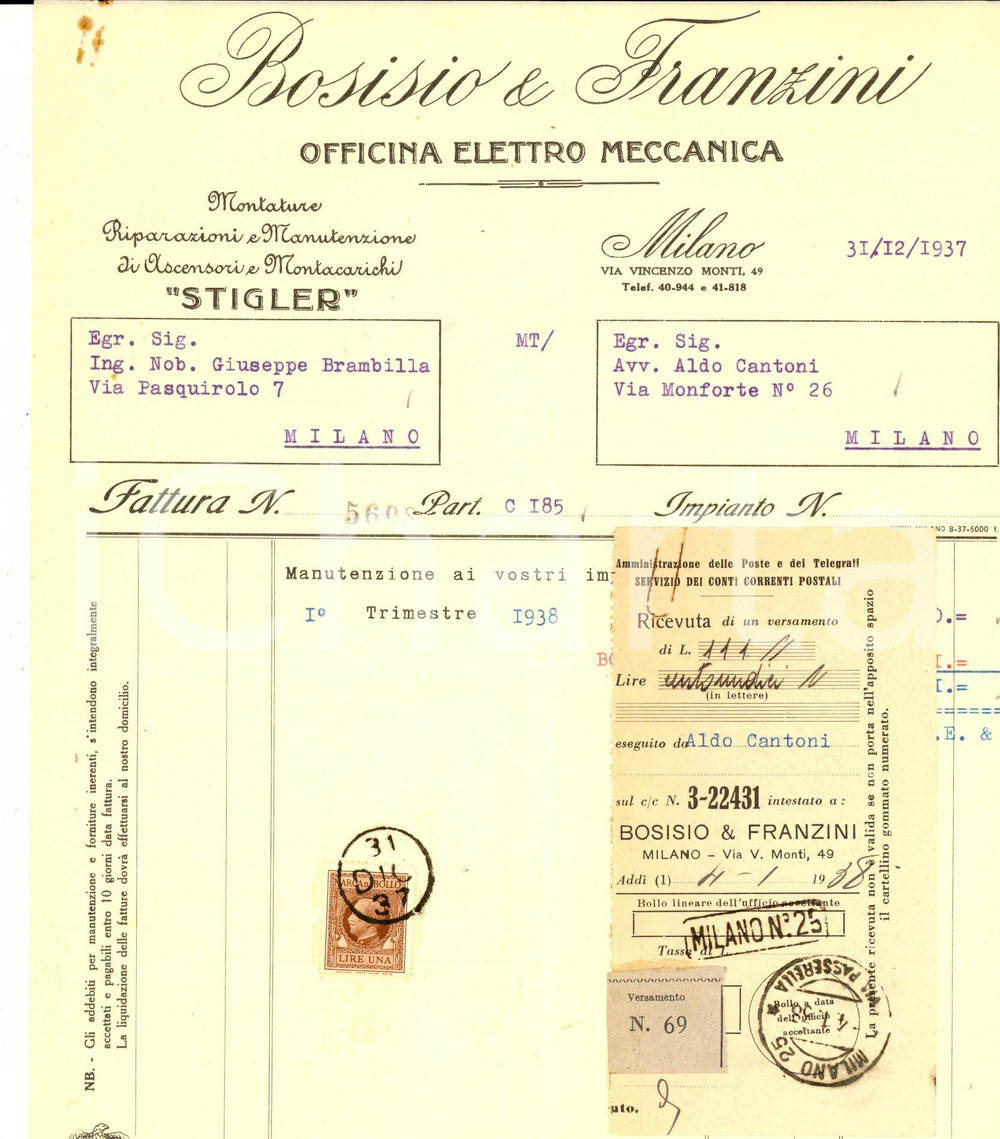 Bosisio & Franzini
OFFICINA ELETTRO MECCANICA
Montature
Riparazioni e Manutenzione
di Ascensori e Montacarichi
"STIGLER"
Milano
VIA VINCENZO MONTI, 49
Telef. 40-944 e 41-818
31/12/1937
Egr. Sig.
Ing. Nob. Giuseppe Brambilla
Via Pasquirolo 7
MILANO
MT/
Egr. Sig.
Avv. Aldo Cantoni
Via Monforte Nº 26
MILANO
Fattura N. Part. C I85 Impianto N.
8-37-5000
Manutenzione ai vostri im
Iº Trimestre I938
NB. - Gli addebiti per manutenzione e forniture inerenti, s'intendono integralmente
accettati e pagabili entro 10 giorni data fattura.
La liquidazione delle fatture dovrà effettuarsi al nostro domicilio.
31
DIC
37
MARCA DA BOLLO
LIRE UNA
Amministrazione delle Poste e dei Telegrafi
SERVIZIO DEI CONTI CORRENTI POSTALI
Ricevuta di un versamento
di L. 111
Lire centoundici
(in lettere)
eseguito da Aldo Cantoni
sul c/c N. 3-22431 intestato a:
BOSISIO & FRANZINI
MILANO - Via V. Monti, 49
Addì (1) 4-1 1938
Bollo lineare dell'ufficio accettante
MILANO Nº 25
Tassa di L.
Versamento
N. 69
Bollo a data
dell'ufficio
accettante
MILANO 25
PASSERELLA
La presente ricevuta non è valida se non porta nell'apposito spazio
il cartellino gommato numerato.
.E. &
nto.
iCharta